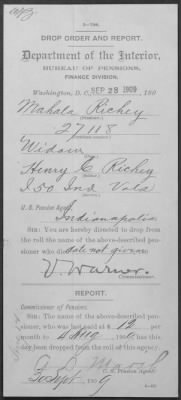 3-798.
DROP ORDER AND REPORT.
Department of the Interior,
BUREAU OF PENSIONS,
FINANCE DIVISION.
Washington, D. C., SEP 28 1909, 190
Mahala Richey
(Pensioner.)
27118
Widow
Henry E Richey
(Soldier.)
I 50 Ind Vols
(Service.)
U. S. Pension Agent,
Indianapolis
SIR: You are hereby directed to drop from
the roll the name of the above-described pen-
sioner, who died date not given
V. Warner.
Commissioner.
REPORT.
Commissioner of Pensions.
SIR: The name of the above-described pen-
sioner, who was last paid at $ 12 per
month to 4 Aug, 190, has this
day been dropped from the roll of this agency.
U. S. Pension Agent.
30 Sept, 1909